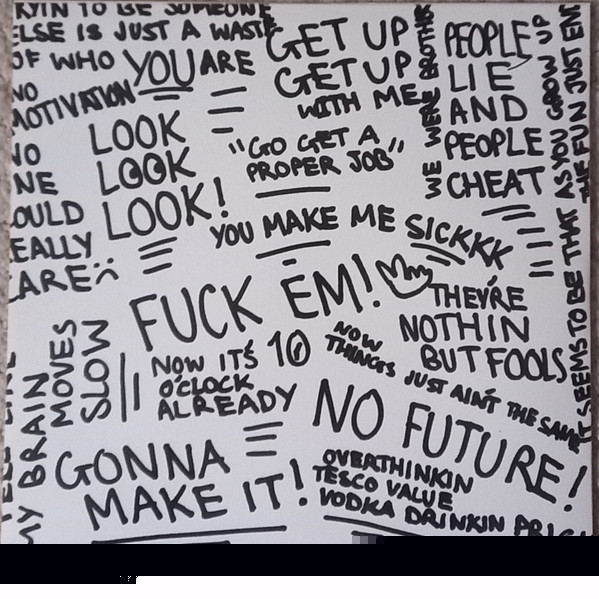 TO BE SOMEONE
ELSE IS JUST A WASTE
OF WHO YOU ARE
NO
MOTIVATION
LOOK
LOOK
LOOK!
NO
ONE
EALLY
CARE
GET UP
GET UP
WITH ME
"GO GET A
PROPER JOB"
WE WERE BROTHE
PEOPLE
LIE
AND
PEOPLE
CHEAT
IT SEEMS TO BE THAT AS YOU GROW UP
THE FUN JUST EN
YOU MAKE ME SICKKK
FUCK 'EM!
THEY'RE
NOTHIN
BUT FOOLS
MY BRAIN
MOVES
SLOW
NOW IT'S 10
O'CLOCK
ALREADY
NOW
THINGS JUST AIN'T THE SAME
NO FUTURE!
GONNA
MAKE IT!
OVERTHINKIN
TESCO VALUE
VODKA DRINKIN